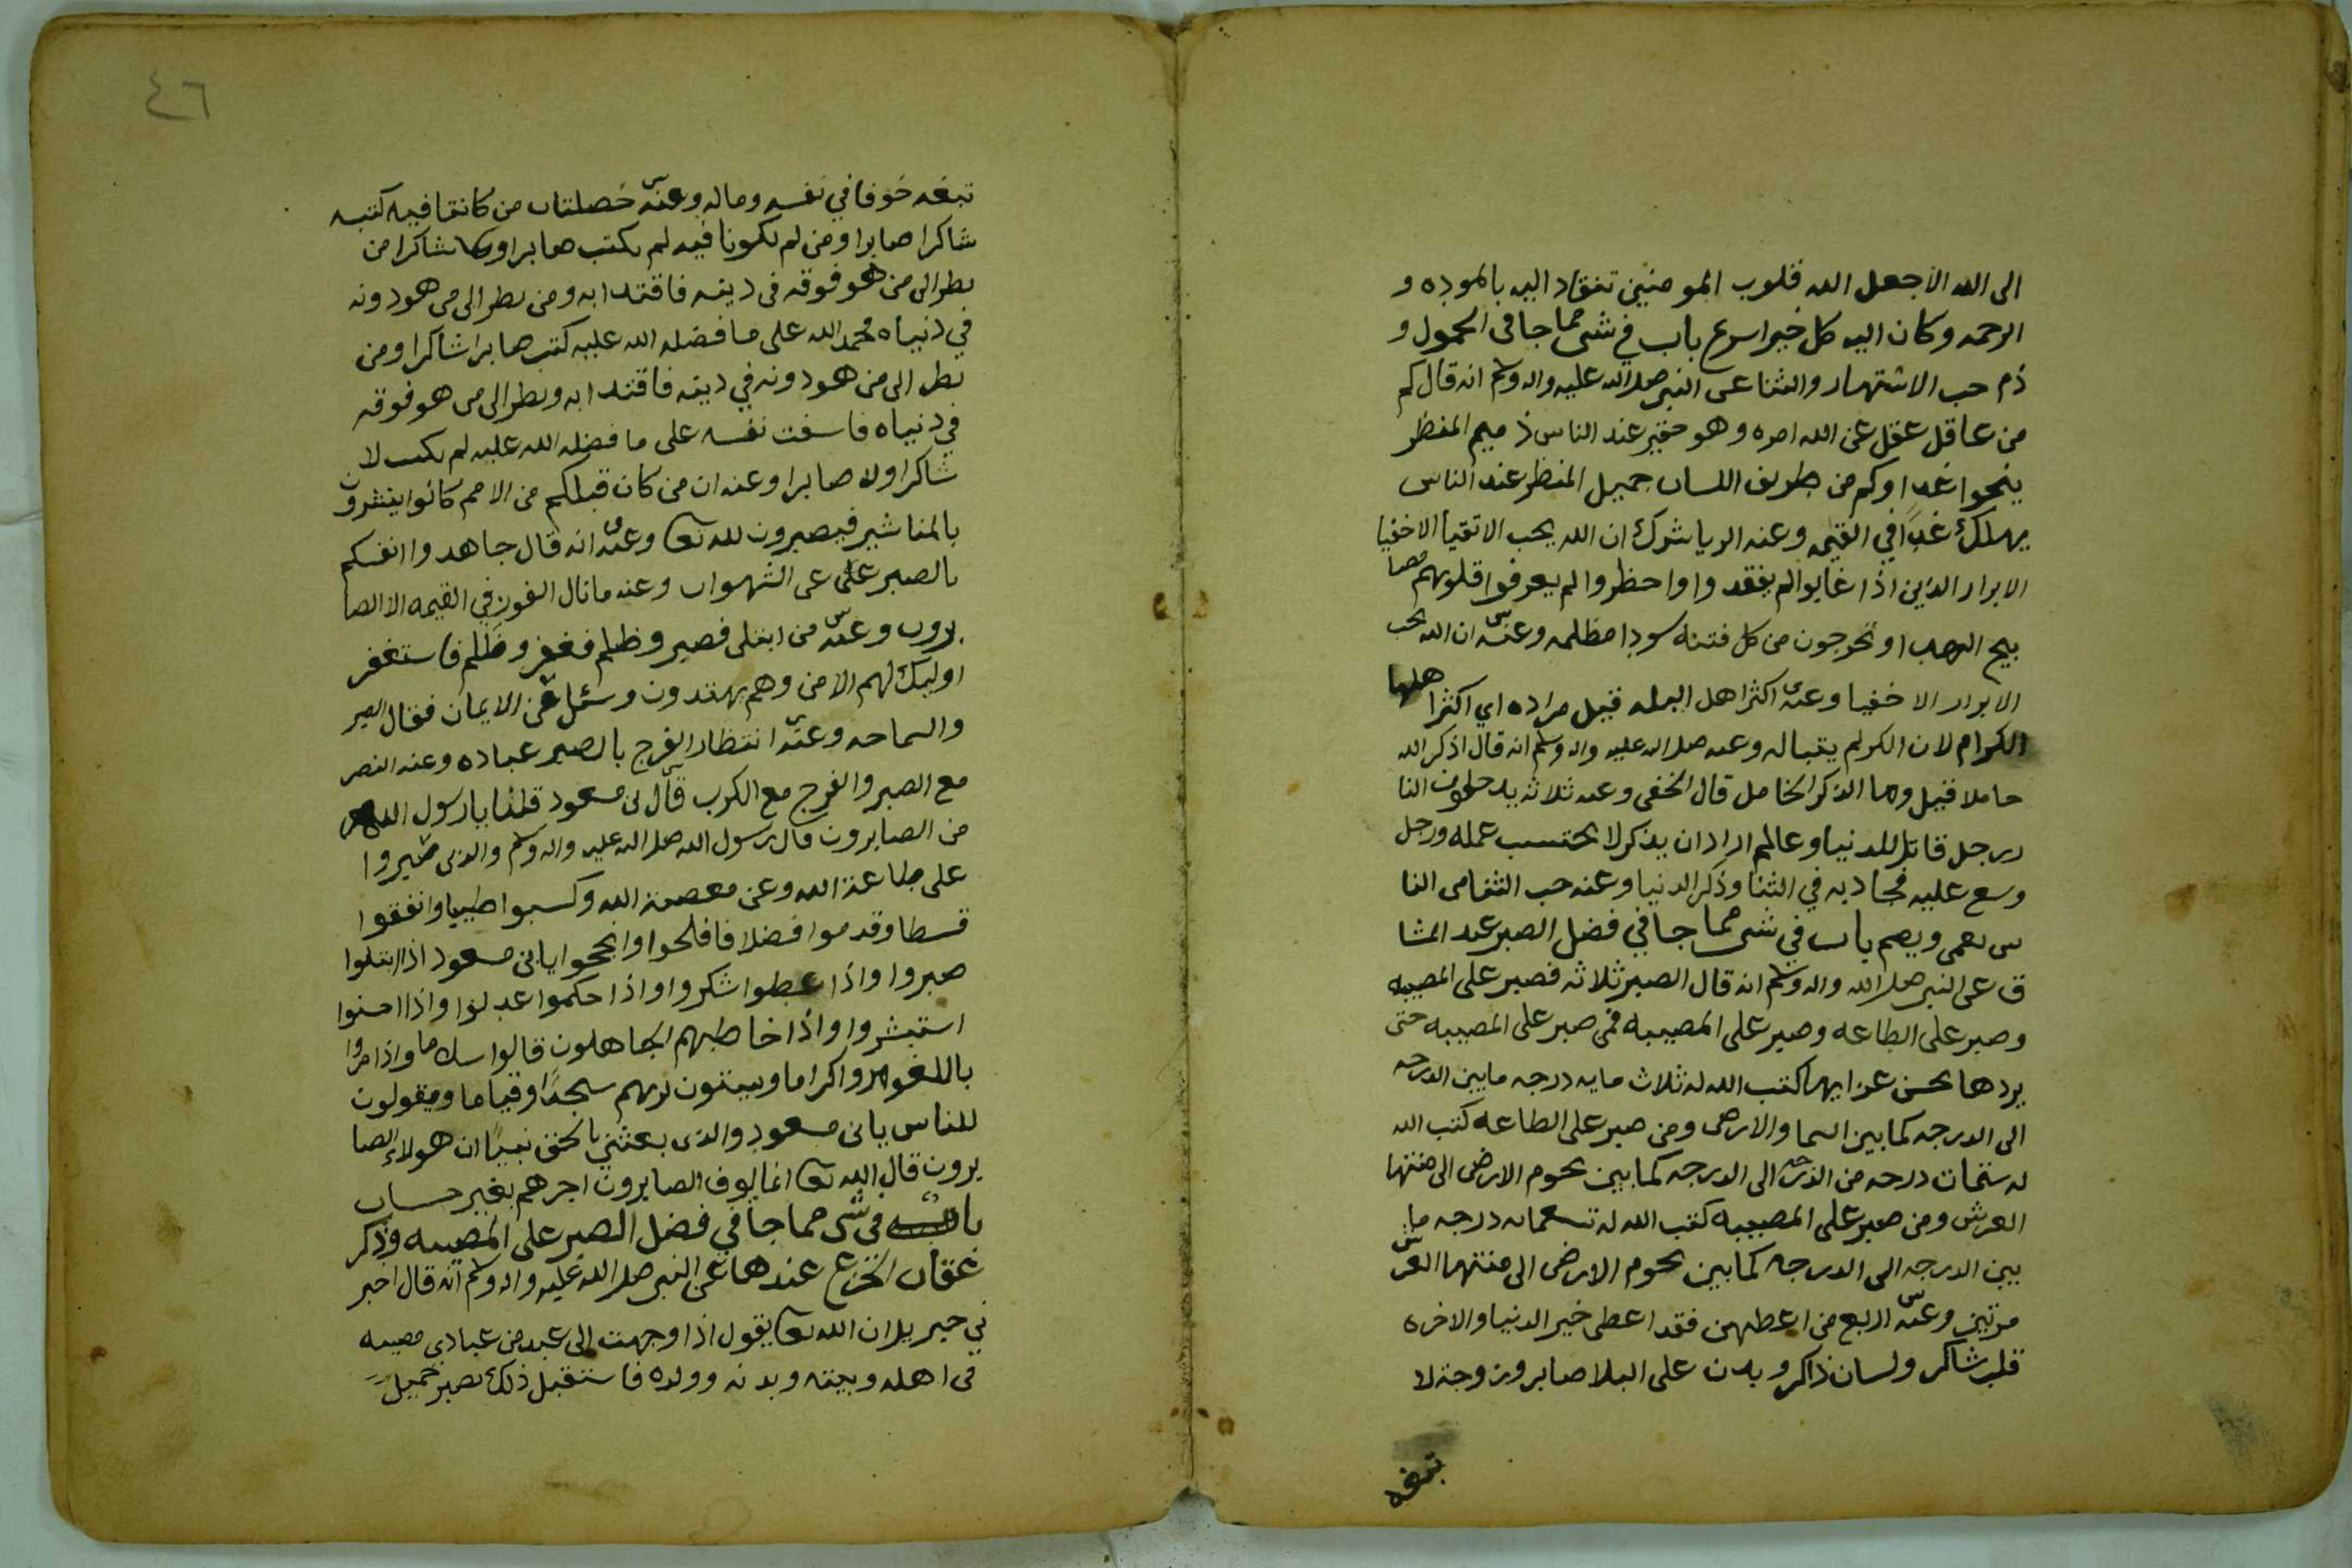 الى الله الا جعل الله قلوب المومنين تنقاد اليه بالموده و
الرحمه وكان اليه كل خير اسرع باب في شى مما جا فى الخمول و
ذم حب الاشتهار والثنا عن النبي صلى الله عليه واله وسلم انه قال كم
من عاقل عقل عن الله امره وهو حقير عند الناس ذميم المنظر
ينجوا غدا وكم من ظريف اللسان جميل المنظر عند الناس
يهلك غدًا في القيمه وعنه الريا شرك ان الله يحب الاتقيا الاخفيا
الابرار الذين اذا غابوا لم يفقدوا واوا حظروا لم يعرفوا قلوبهم مصا
بيح الهدى يخرجون من كل فتنه سودا مظلمه وعنه ان الله يحب
الابرار الاخفيا وعنه اكثر اهل الجنه البله قيل مراده اي اكثر اهلها
الكرام لان الكريم يتباله وعنه صلى الله عليه واله وسلم انه قال اذكر الله
خاملا قيل وما الذكر الخامل قال الخفى وعنه ثلاثه يدخلون النا
ر رجل قاتل للدنيا وعالم اراد ان يذكر لا يحتسب عمله ورجل
وسع عليه فجاد به في الثنا وذكر الدنيا وعنه حب الثنا من النا
س يعمى ويصم باب في شى مما جا في فضل الصبر عند المشا
ق عن النبي صلى الله واله وسلم انه قال الصبر ثلاثه فصبر على المصيبه
وصبر على الطاعه وصبر على المصيبه فمن صبر على المصيبه حتى
يردها بحسن عزايها كتب الله له ثلاث مايه درجه ما بين الدرجه
الى الدرجه كما بين السما والارض ومن صبر على الطاعه كتب الله
له ستمات درجه من الدرجه الى الدرجه كما بين تخوم الارض الى منتها
العرش ومن صبر على المصيبه كتب الله له تسعمايه درجه ما
بين الدرجه الى الدرجه كما بين تخوم الارض الى منتهى العرش
مرتين وعنه اربع من اعطيهن فقد اعطى خير الدنيا والاخره
قلب شاكر ولسان ذاكر وبدن على البلا صابر وزوجه لا
تبغه
٤٦
تبغه خوفا في نفسه وماله وعنه خصلتان من كانتا فيه كتبه
شاكرا صابرا ومن لم يكونا فيه لم يكتب صابرا ولا شاكرا من
نظر الى من هو فوقه في دينه فاقتدا به ومن نظر الى من هو دونه
في دنياه فحمد الله على ما فضله الله عليه كتب صابرا شاكرا ومن
نظر الى من هو دونه في دينه فاقتدا به ونظر الى من هو فوقه
في دنياه فاسفت نفسه على ما فضله الله عليه لم يكتب لا
شاكرا ولا صابرا وعنه ان من كان قبلكم من الامم كانوا ينشرون
بالمناشير فيصبرون لله تعا وعنه انه قال جاهدوا انفسكم
بالصبر على عن الشهوات وعنه ما نال الفوز في القيمه الا الصا
برون وعنه من ابتلى فصبر وظلم فغفر وظلم فاستغفر
اوليك لهم الامن وهم يهتدون وسئل عن الايمان فقال الصبر
والسماحه وعنه انتظار الفرج بالصبر عباده وعنه النصر
مع الصبر والفرج مع الكرب قال ابن مسعود قلنا يا رسول الله
من الصابرون قال رسول الله صلى الله عليه واله وسلم والذين صبروا
على طاعة الله وعن معصية الله وكسبوا طيبا وانفقوا
قسطا وقدموا فضلا فافلحوا وانجحوا يا بن مسعود اذا ابتلوا
صبروا واذا اعطوا شكروا واذا حكموا عدلوا واذا احسنوا
استبشروا واذا خاطبهم الجاهلون قالوا سلاما واذا مروا
باللغو مروا كراما ويبيتون لربهم سجدًا وقياما ويقولون
للناس يا بن مسعود والذي بعثني بالحق نبيًا ان هولاء الصا
برون قال الله تعا انما يوف الصابرون اجرهم بغير حساب
باب في شى مما جا في فضل الصبر على المصيبه وذكر
عقاب الجزع عندها عن النبي صلى الله عليه واله وسلم انه قال اخبر
ني جبريل ان الله تعا يقول اذا وجهت الى عبد من عبادي مصيبه
في اهله وبيته وبدنه وولده فاستقبل ذلك بصبر جميل